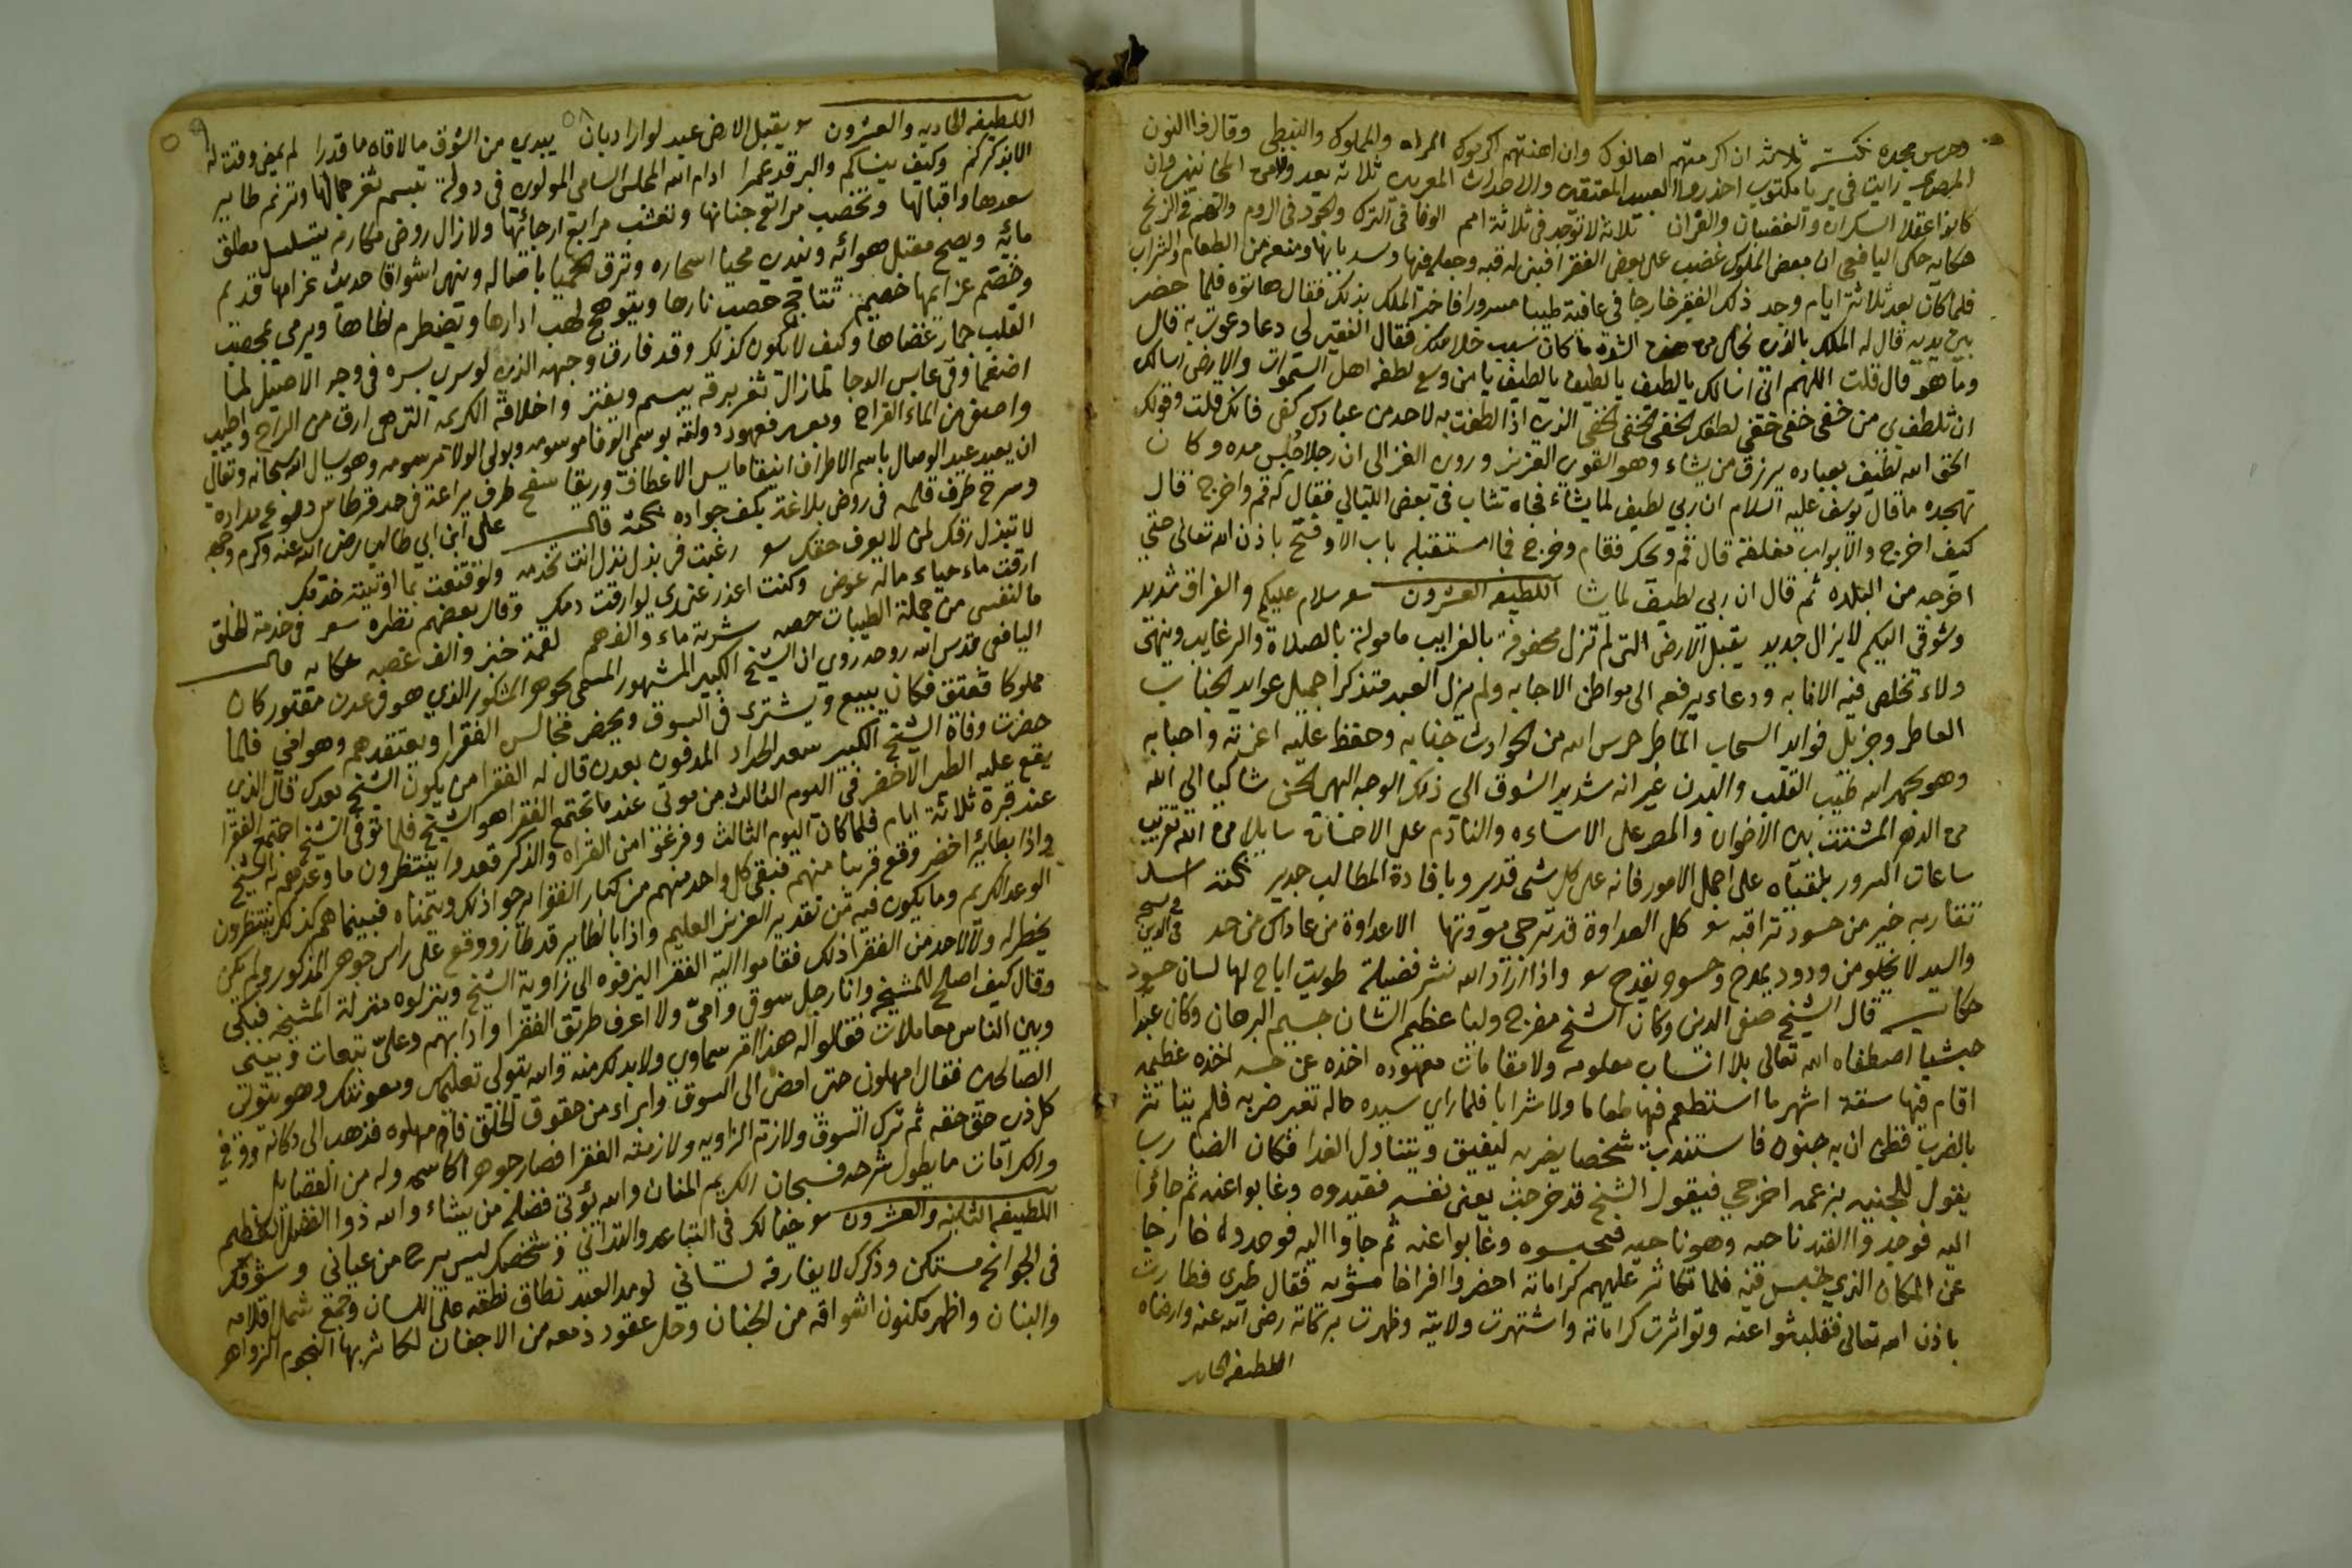 وحرس مجده نكتة ثلاثة ان اكرمتهم اهانوك وان اهنتهم اكرموك المراه والمملوك والنبطي وقال ذو النون
المصري رايت في بربا مكتوب احذروا العبيد المعتقين والاحداث
كانوا عقلا السكران والغضبان والقران ثلاثة لا توجد في ثلاثة امم الوفا في الترك والجود في الروم والهم في الزنج
حكايه حكى اليافعي ان بعض الملوك غضب على بعض الفقرا فبنى له قبه وجعله فيها وسد بابها ومنعه من الطعام والشراب
فلما كان بعد ثلاثة ايام وجد ذلك الفقير خارجا في عافية طيبا مسرورا فاخبر الملك بذلك فقال هاتوه فلما حضر
بين يديه قال له الملك بالذي نجاك من هذه الشدة ما كان سبب خلاصك فقال الفقير لي دعا دعوت به قال
وما هو قال قلت اللهم اني اسالك يا لطيف يا لطيف يا لطيف يا من وسع لطفه اهل السموات والارض اسالك
ان تلطف بي من خفي خفي خفي لطفك الخفي الخفي الخفي الذي اذا لطفت به لاحد من عبادك كفى فانك قلت وقولك
الحق الله لطيف بعباده يرزق من يشاء وهو القوي العزيز وروى الغزالي ان رجلا حبس مده وكان
تهجده ما قال يوسف عليه السلام ان ربي لطيف لما يشاء فجاه شاب في بعض الليالي فقال له قم واخرج قال
كيف اخرج والابواب مغلقة قال قم ويحك فقام وخرج فما استقبله باب الا وفتح باذن الله تعالى حتى
اخرجه من البلده ثم قال ان ربي لطيف لما يشا اللطيفه العشرون سلام عليكم والفراق شديد
وشوقي اليكم لا يزال جديد يقبل الارض التي لم تزل محفوفة بالغرايب مامولة بالصلاة والرغايب وينهى
ولاء تخلص فيه الانابه ودعاء يرفعه الى مواطن الاجابه ولم يزل العبد متذكرا جميل عوايد الجناب
العاطر وجزيل فوايد السحاب الماطر حرس الله من الحوادث جنابه وحفظ عليه اعزته واحبابه
وهو بحمد الله طيب القلب والبدن غير انه شديد الشوق الى ذلك الوجه البهى الحسن شاكيا الى الله
من الدهر المشتت بين الاخوان والمصر على الاساءه والنادم على الاحسان سايلا من الله تقريب
ساعات السرور بلقياه على اجمل الامور فانه على كل شي قدير وبافادة المطالب جدير نكتة اسد
تقاربه خير من حسود تراقبه كل العداوة قد ترجى مودتها الا عداوة من عاداك من حسد
والسيد لا يخلو من ودود يمدح وحسود يقدح واذا اراد الله نشر فضيلة طويت اتاح لها لسان حسود
حكاية قال الشيخ صفي الدين وكان الشيخ مفرج وليا عظيم الشان جسيم البرهان وكان عبدا
حبشيا اصطفاه الله تعالى بلا انساب معلومه ولا مقامات معهوده اخذه عن حسه اخذه عظيمه
اقام فيها ستة اشهر ما استطعم فيها طعاما ولا شرابا فلما راى سيده حاله تغير ضربه فلم يتاثر
بالضرب فظن ان به جنون فاستندب شخصا يضربه ليفيق ويتناول الغدا فكان الضارب
يقول للجنيه بزعمه اخرجي فيقول الشيخ قد خرجت يعني نفسه فقيدوه وغابوا عنه ثم جاؤا
اليه فوجدوا القيد ناحيه وهو ناحيه فحبسوه وغابوا عنه ثم جاوا اليه فوجدوه خارجا
عن المكان الذي حبس فيه فلما تكاثر عليهم كراماته احضروا افراخا مشويه فقال طيري فطارت
باذن الله تعالى فقلبثوا عنه وتواترت كراماته واشتهرت ولايته وظهرت بركاته رضي الله عنه وارضاه
اللطيفه الحاديه
اللطيفه الحاديه والعشرون يقبل الارض عبد لو اراد بان يبدي من الشوق ما لاقاه ما قدرا لم يمض وقت له
الا بذكركم وكيف ينساكم والبر قد غمرا ادام الله المجلس السامي المولوي في دولة تبسم ثغر جمالها وترنم طاير
سعدها واقبالها وتخصب مراتع جنانها وتعشب مرابع ارجائها ولا زال روض مكارمه يتسلسل مطلق
مائه ويصح معتل هوائه ويندى محيا اسحاره وترق الحميا باصاله وينهى اشواقا حديث غرامها قديم
وخصم عزايمها خصيم تتاجج حصب نارها ويتوهج لهب اوارها ويضطرم لظاها ويرمى بمحصب
القلب جمار غضاها وكيف لا يكون كذلك وقد فارق وجهه الذي لو سرى بسره في وجه الاصيل لما
اضمحل وفي عابس الدجا لما زال ثغر برقه يبسم ويفتر واخلاقه الكريمه التي هي ارق من الراح واطيب
واصفى من الماء القراح وبعد فعهود دولته بوسمي الوفا موسومه وبولي الولا مرسومه وهو يسال الله سبحانه وتعالى
ان يعيد عيد الوصال باسم الاطراف انيقا مايس الاعطاف وريقا سفح طرف يراعة في خد قرطاس دموع مداده
وسرح طرف قلمه في روض بلاغة بكف جواده نكتة قال على ابن ابي طالب رضي الله عنه وكرم وجهه
لا تبذل رقك لمن لا يعرف حقك رغبت في بذل نذل انت تخدمه ولو قنعت بما اوتيته خدمك
ارقت ماء حياء ماله عوض وكنت اعذر عندي لو ارقت دمك وقال بعضهم نظره في خدمة الخلق
ما لنفسي من جملة الطيبات حصه شربة ماء والف هم لقمة خبز والف غصه حكايه قال
اليافعي قدس الله روحه روي ان الشيخ الكبير المشهور المسمى بجوهر المشكور الذي هو في عدن مقبور كان
مملوكا فعتق فكان يبيع ويشترى في السوق ويحضر مجالس الفقرا ويعتقدهم وهو امي فلما
حضرت وفاة الشيخ الكبير سعد الحداد المدفون بعدن قال له الفقرا من يكون الشيخ بعدك قال الذي
يقع عليه الطير الاخضر في اليوم الثالث من موتى عندما تجتمع الفقرا هو الشيخ فلما توفي الشيخ اجتمع الفقرا
عند قبره ثلاثة ايام فلما كان اليوم الثالث وفرغوا من القراه والذكر قعدوا ينتظرون ما وعدهم به الشيخ
واذا بطائر اخضر وقع قريبا منهم فبقى كل واحد منهم من كبار الفقرا يرجوا ذلك ويتمناه فبينما هم كذلك ينتظرون
الوعد الكريم وما يكون فيه من تقدير العزيز العليم واذا بالطاير قد طار ووقع على راس جوهر المذكور ولم يكن
يخطر له ولا لاحد من الفقرا ذلك فقاموا اليه الفقرا ليزفوه الى زاوية الشيخ وينزلوه منزلة المشيخه فبكى
وقال كيف اصلح للمشيخه وانا رجل سوقي وامي ولا اعرف طريق الفقرا وادابهم وعلي تبعات وبيني
وبين الناس معاملات فقالوا له هذا امر سماوي ولا بد لك منه والله يتولى تعليمك ومعونتك وهو يتولى
الصالحين فقال امهلوني حتى امضي الى السوق وابراء من حقوق الخلق فامهلوه فذهب الى دكانه ووفى
كل ذي حق حقه ثم ترك السوق ولازم الزاويه ولازمته الفقرا فصار جوهرا كاسمه وله من الفضايل
والكرامات ما يطول شرحه فسبحان الكريم المنان والله يؤتي فضله من يشاء والله ذوا الفضل العظيم
اللطيفه الثانيه والعشرون خيالك في التباعد والتداني وشخصك ليس يبرح من عياني وشوقك
في الجوانح مستكن وذكرك لا يفارقه لساني لو مد العبد نطاق نطقه على اللسان وجمع شمل اقلامه
والبنان واظهر مكنون اشواقه من الجنان وحل عقود دمعه من الاجفان لكاثر بها النجوم الزواهر